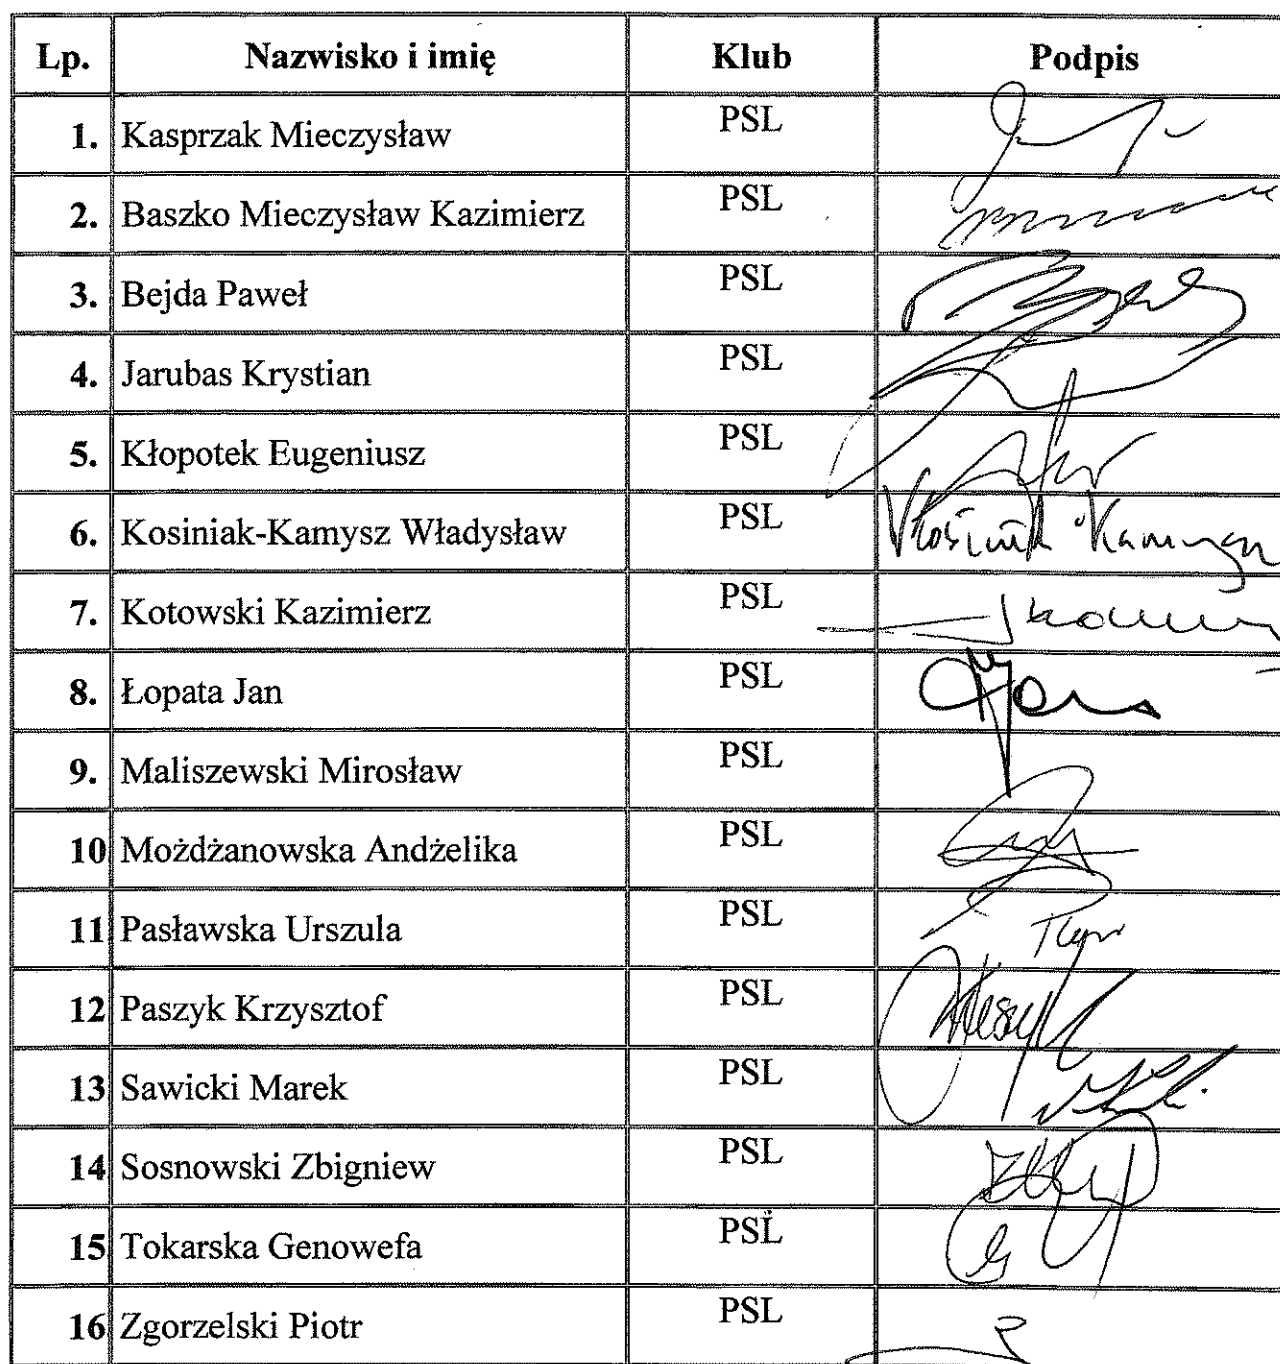 Lp. Nazwisko i imię Klub Podpis
1. Kasprzak Mieczysław PSL
2. Baszko Mieczysław Kazimierz PSL
3. Bejda Paweł PSL
4. Jarubas Krystian PSL
5. Kłopotek Eugeniusz PSL
6. Kosiniak-Kamysz Władysław PSL Kosiniak Kamysz
7. Kotowski Kazimierz PSL
8. Łopata Jan PSL
9. Maliszewski Mirosław PSL
10 Możdżanowska Andżelika PSL
11 Pasławska Urszula PSL
12 Paszyk Krzysztof PSL
13 Sawicki Marek PSL
14 Sosnowski Zbigniew PSL
15 Tokarska Genowefa PSL
16 Zgorzelski Piotr PSL